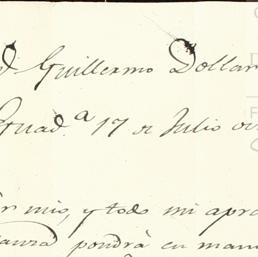 Guillermo Dollar
Guad.ª 17 de Julio de
mio, y todo mi apre
pondrà en man